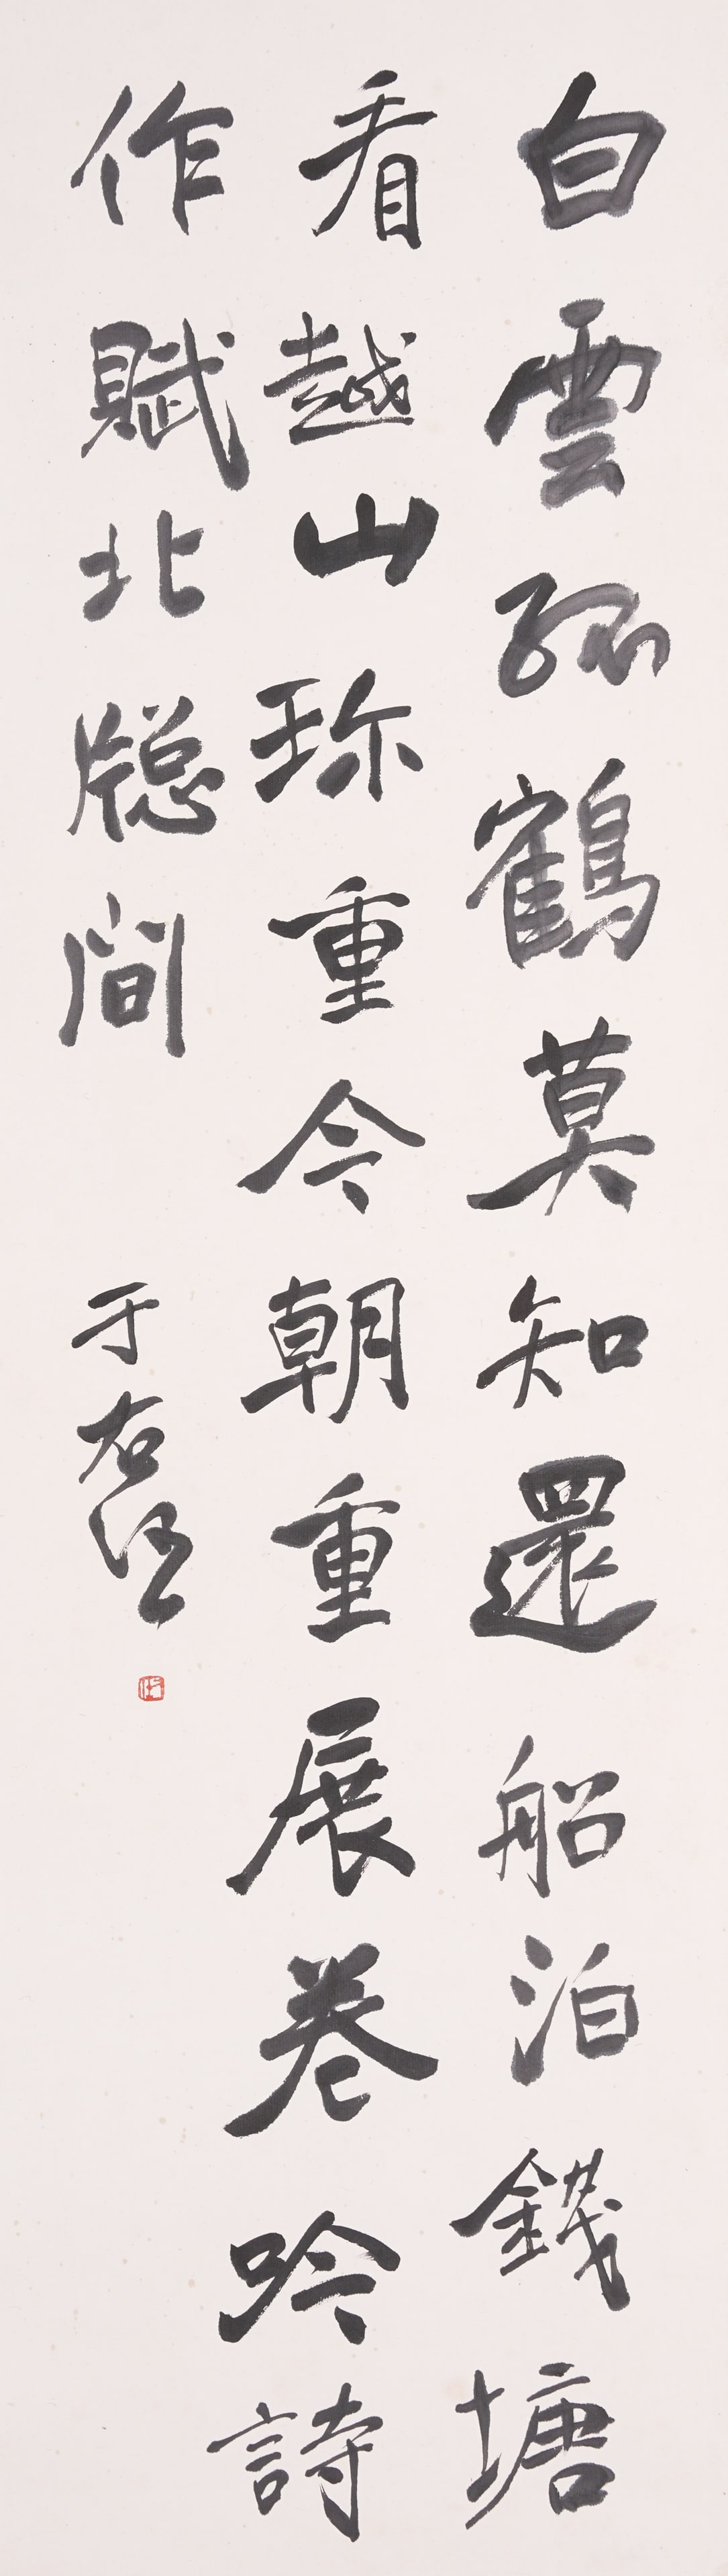 白雲孤鶴莫知還船泊錢塘
看越山珎重今朝重展卷吟詩
作賦北牕間
于右任